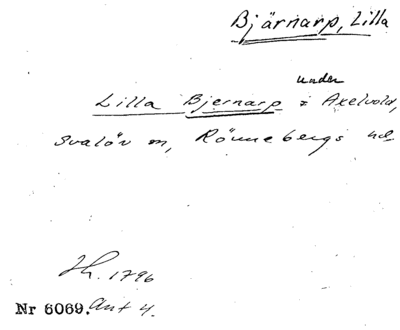 Bjärnarp, Lilla
under
Lilla Bjernarp i Axelvold,
Svalöv m, Rönnebergs hd.
1796
Nr 6069. Ant 4.